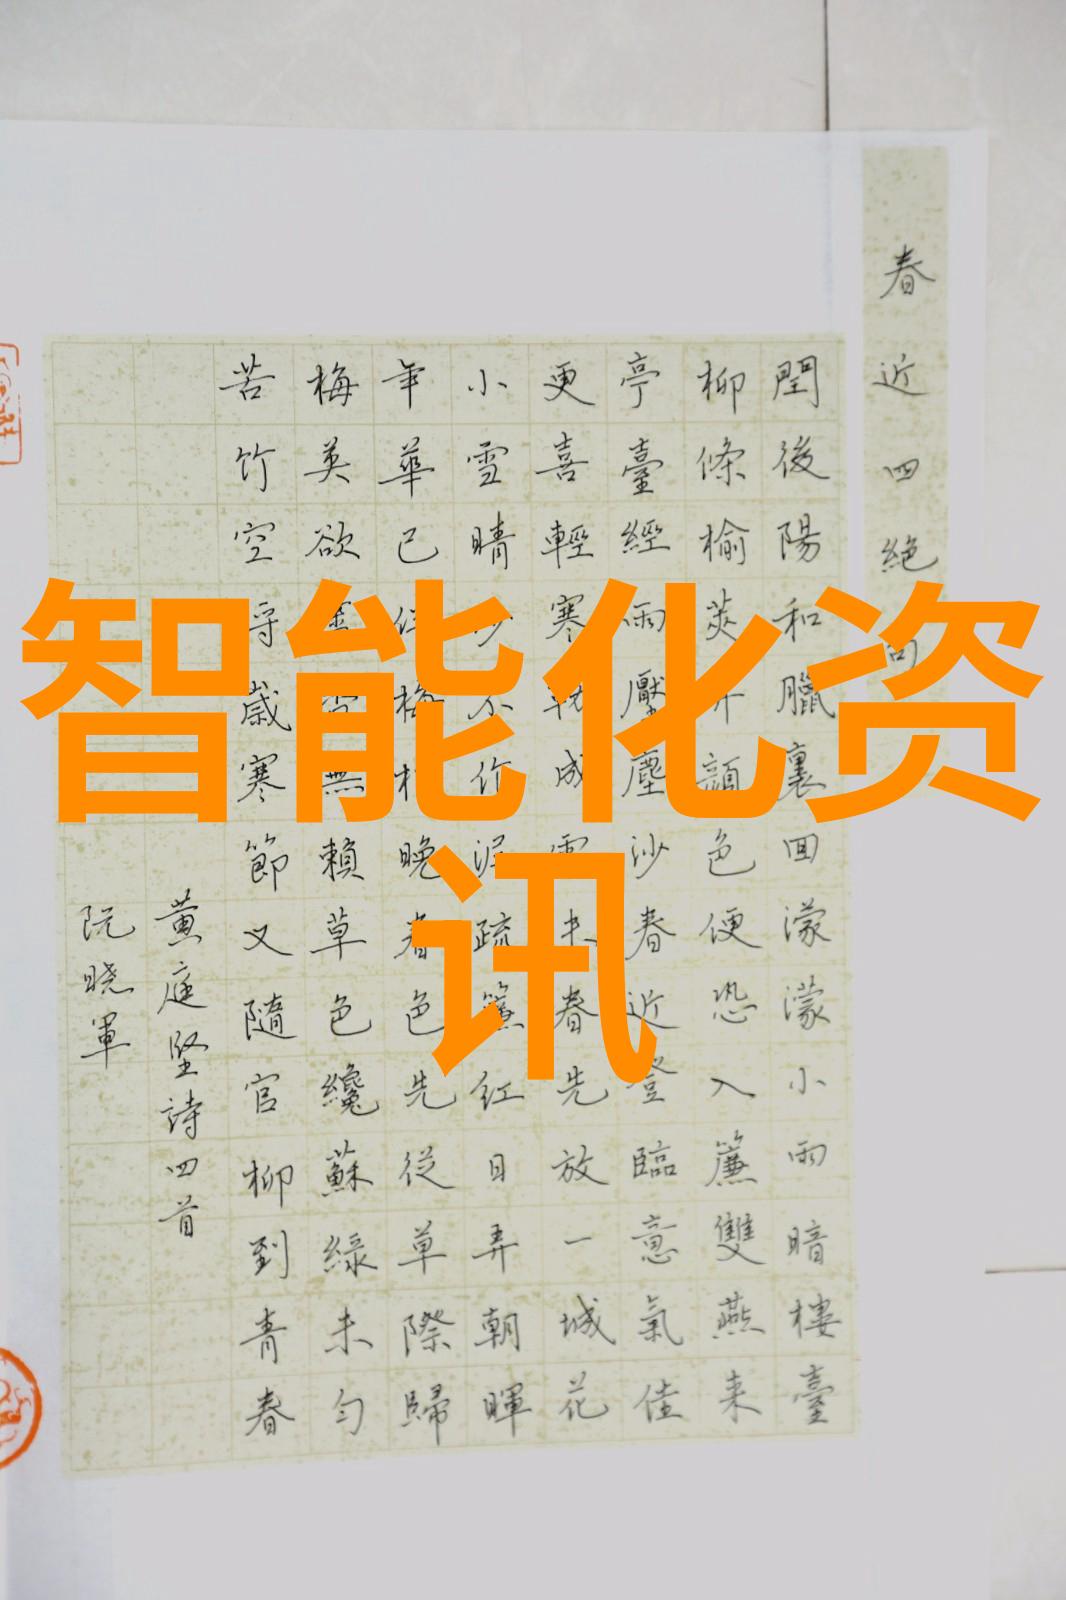 春近四絶句
閏後陽和臘裏回濛濛小雨暗樓臺
柳條榆莢弄顏色便恐入簾雙燕来
亭臺經雨壓塵沙春近登臨意氣佳
更喜輕寒成未春先放一城花
小雪晴沙不作泥疏簾紅日弄朝暉
年華已梅晚春色先從草際歸
梅英欲無賴草色纔蘇綠未勻
苦竹空將歲寒節又隨官柳到青春
黄庭堅詩四首
阮晓軍
智能化资
讯